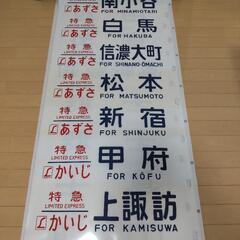 あずさ 南小谷
FOR MINAMIOTARI
特急 白馬
LIMITED EXPRESS
あずさ FOR HAKUBA
特急 信濃大町
LIMITED EXPRESS
あずさ FOR SHINANO-ŌMACHI
特急 松本
LIMITED EXPRESS
あずさ FOR MATSUMOTO
特急 新宿
LIMITED EXPRESS
あずさ FOR SHINJUKU
特急 甲府
LIMITED EXPRESS
かいじ FOR KŌFU
特急 上諏訪
LIMITED EXPRESS
かいじ FOR KAMISUWA